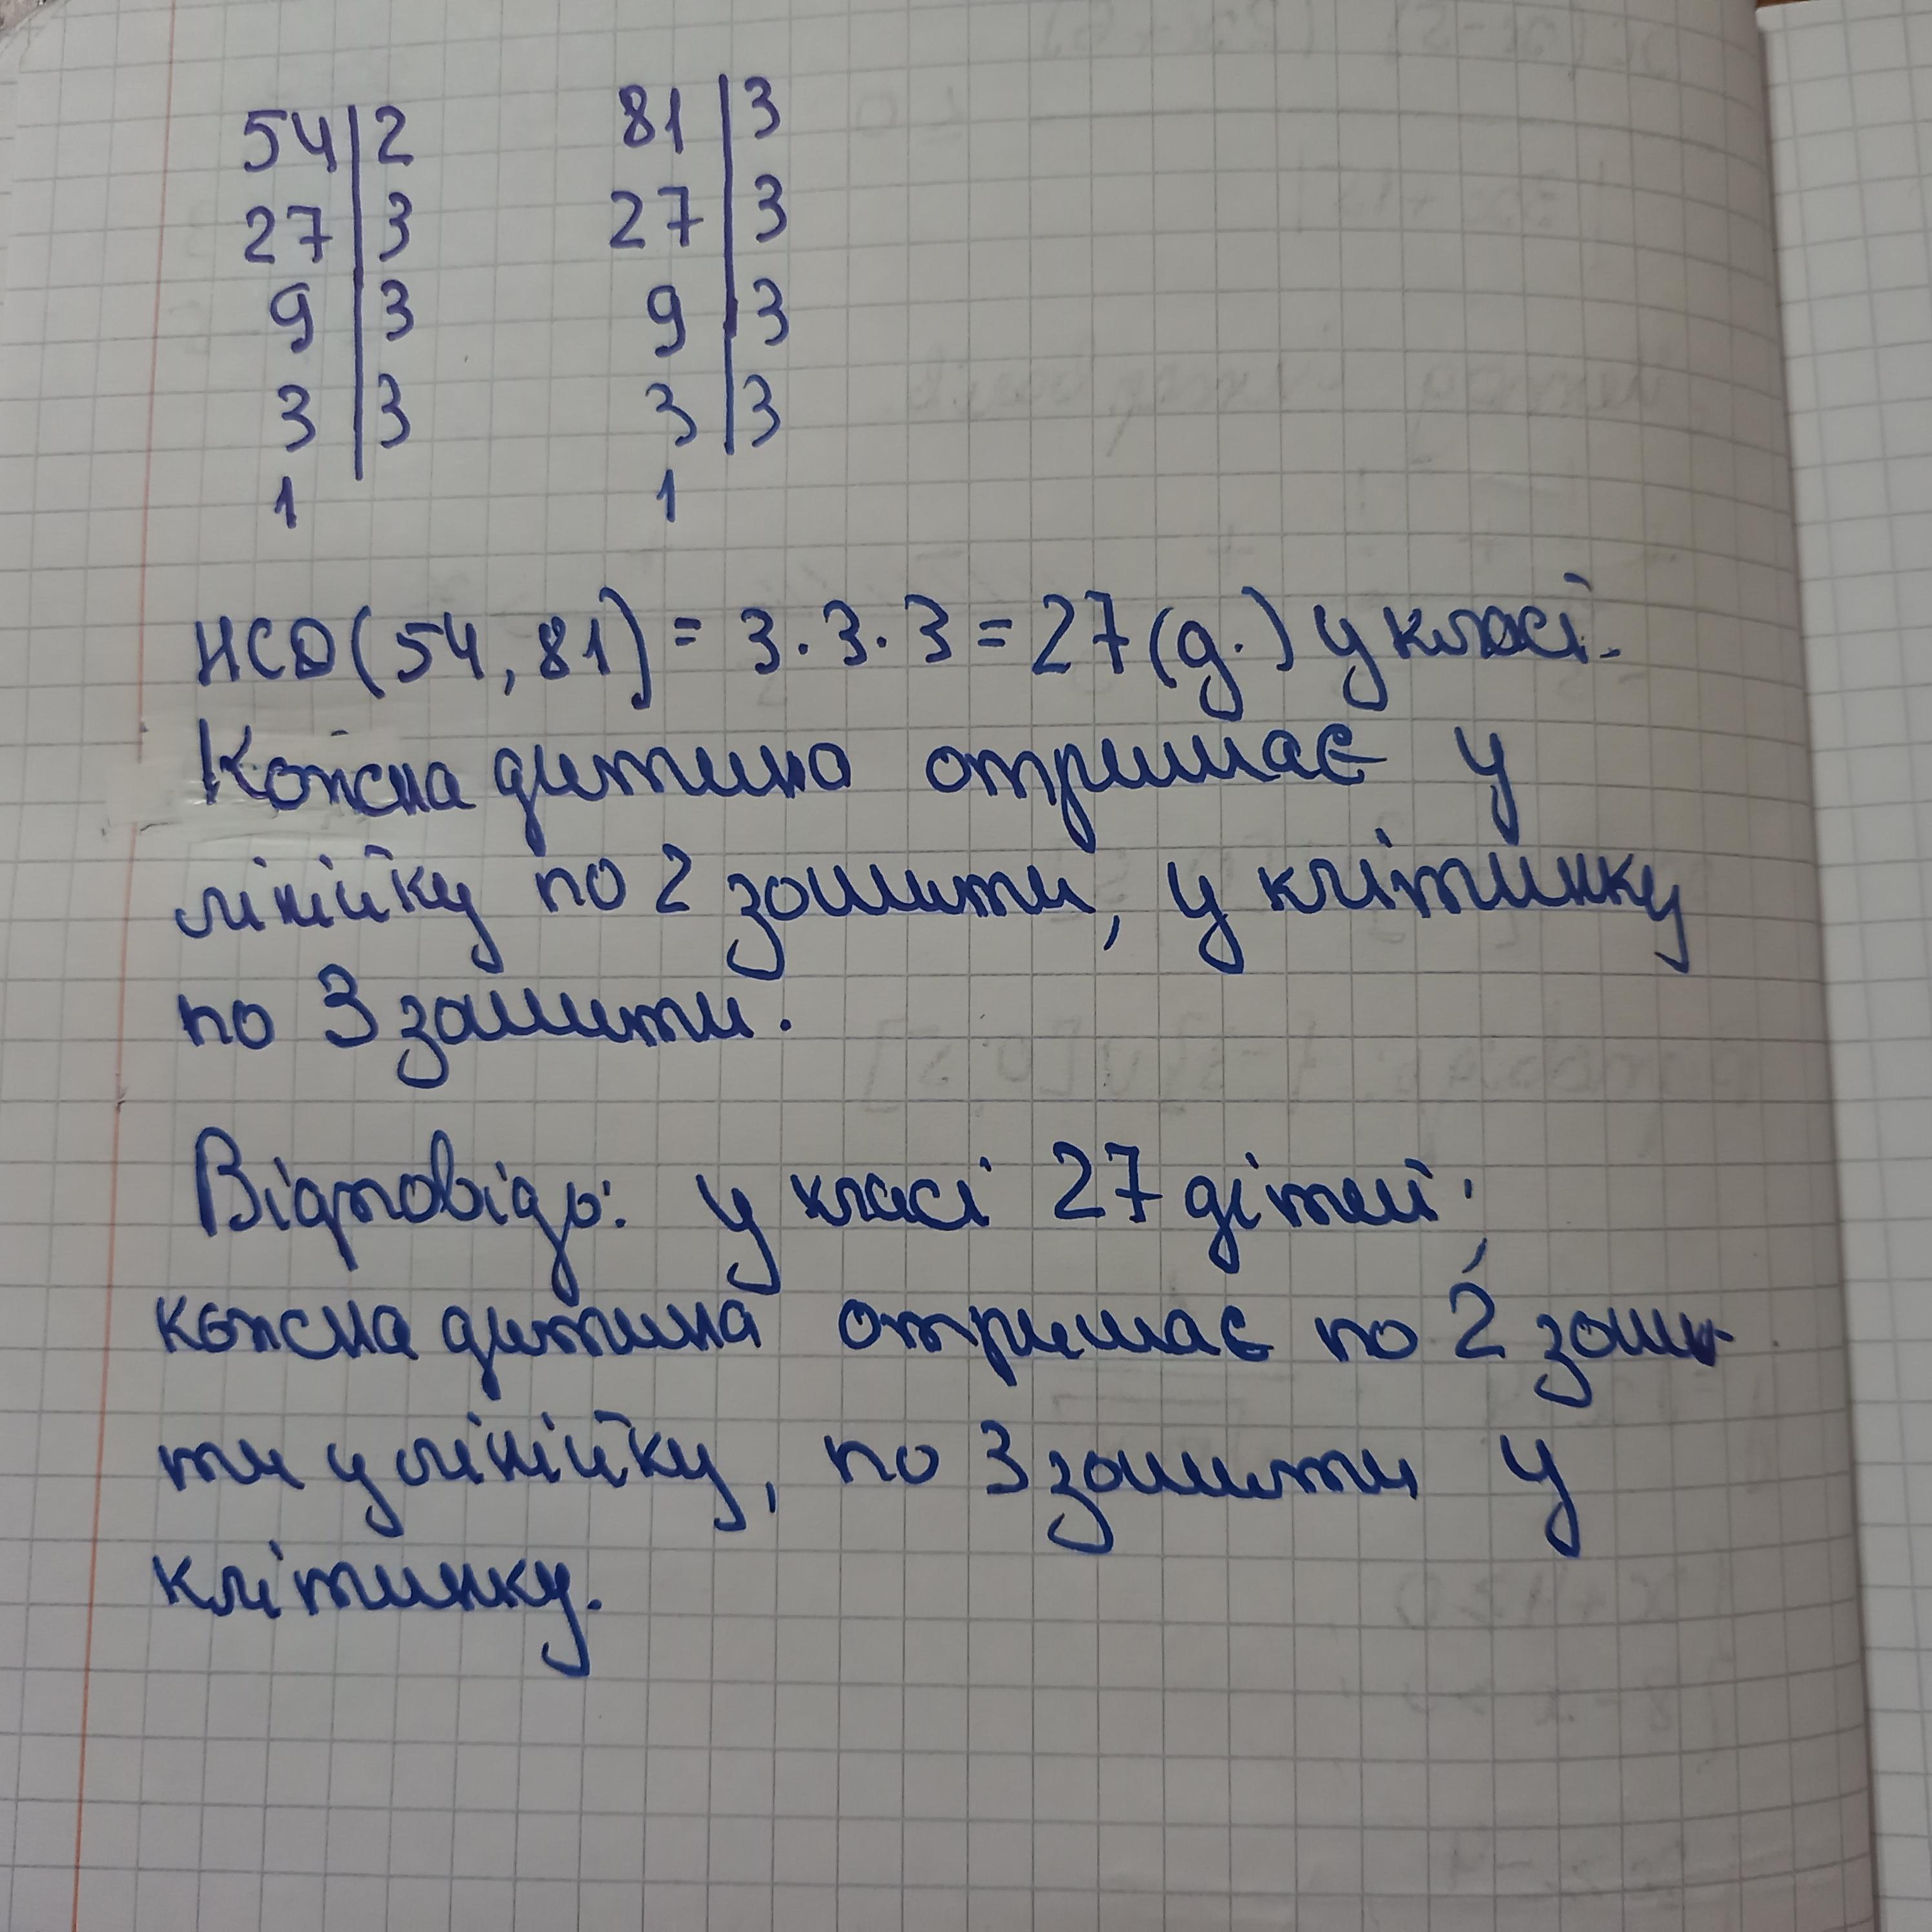 54 | 2 81 | 3
27 | 3 27 | 3
9 | 3 9 | 3
3 | 3 3 | 3
1 1
НСД(54, 81) = 3·3·3 = 27 (д.) у класі.
Кожна дитина отримає у
лінійку по 2 зошити, у клітинку
по 3 зошити.
Відповідь: у класі 27 дітей;
кожна дитина отримає по 2 зоши-
ти у лінійку, по 3 зошити у
клітинку.